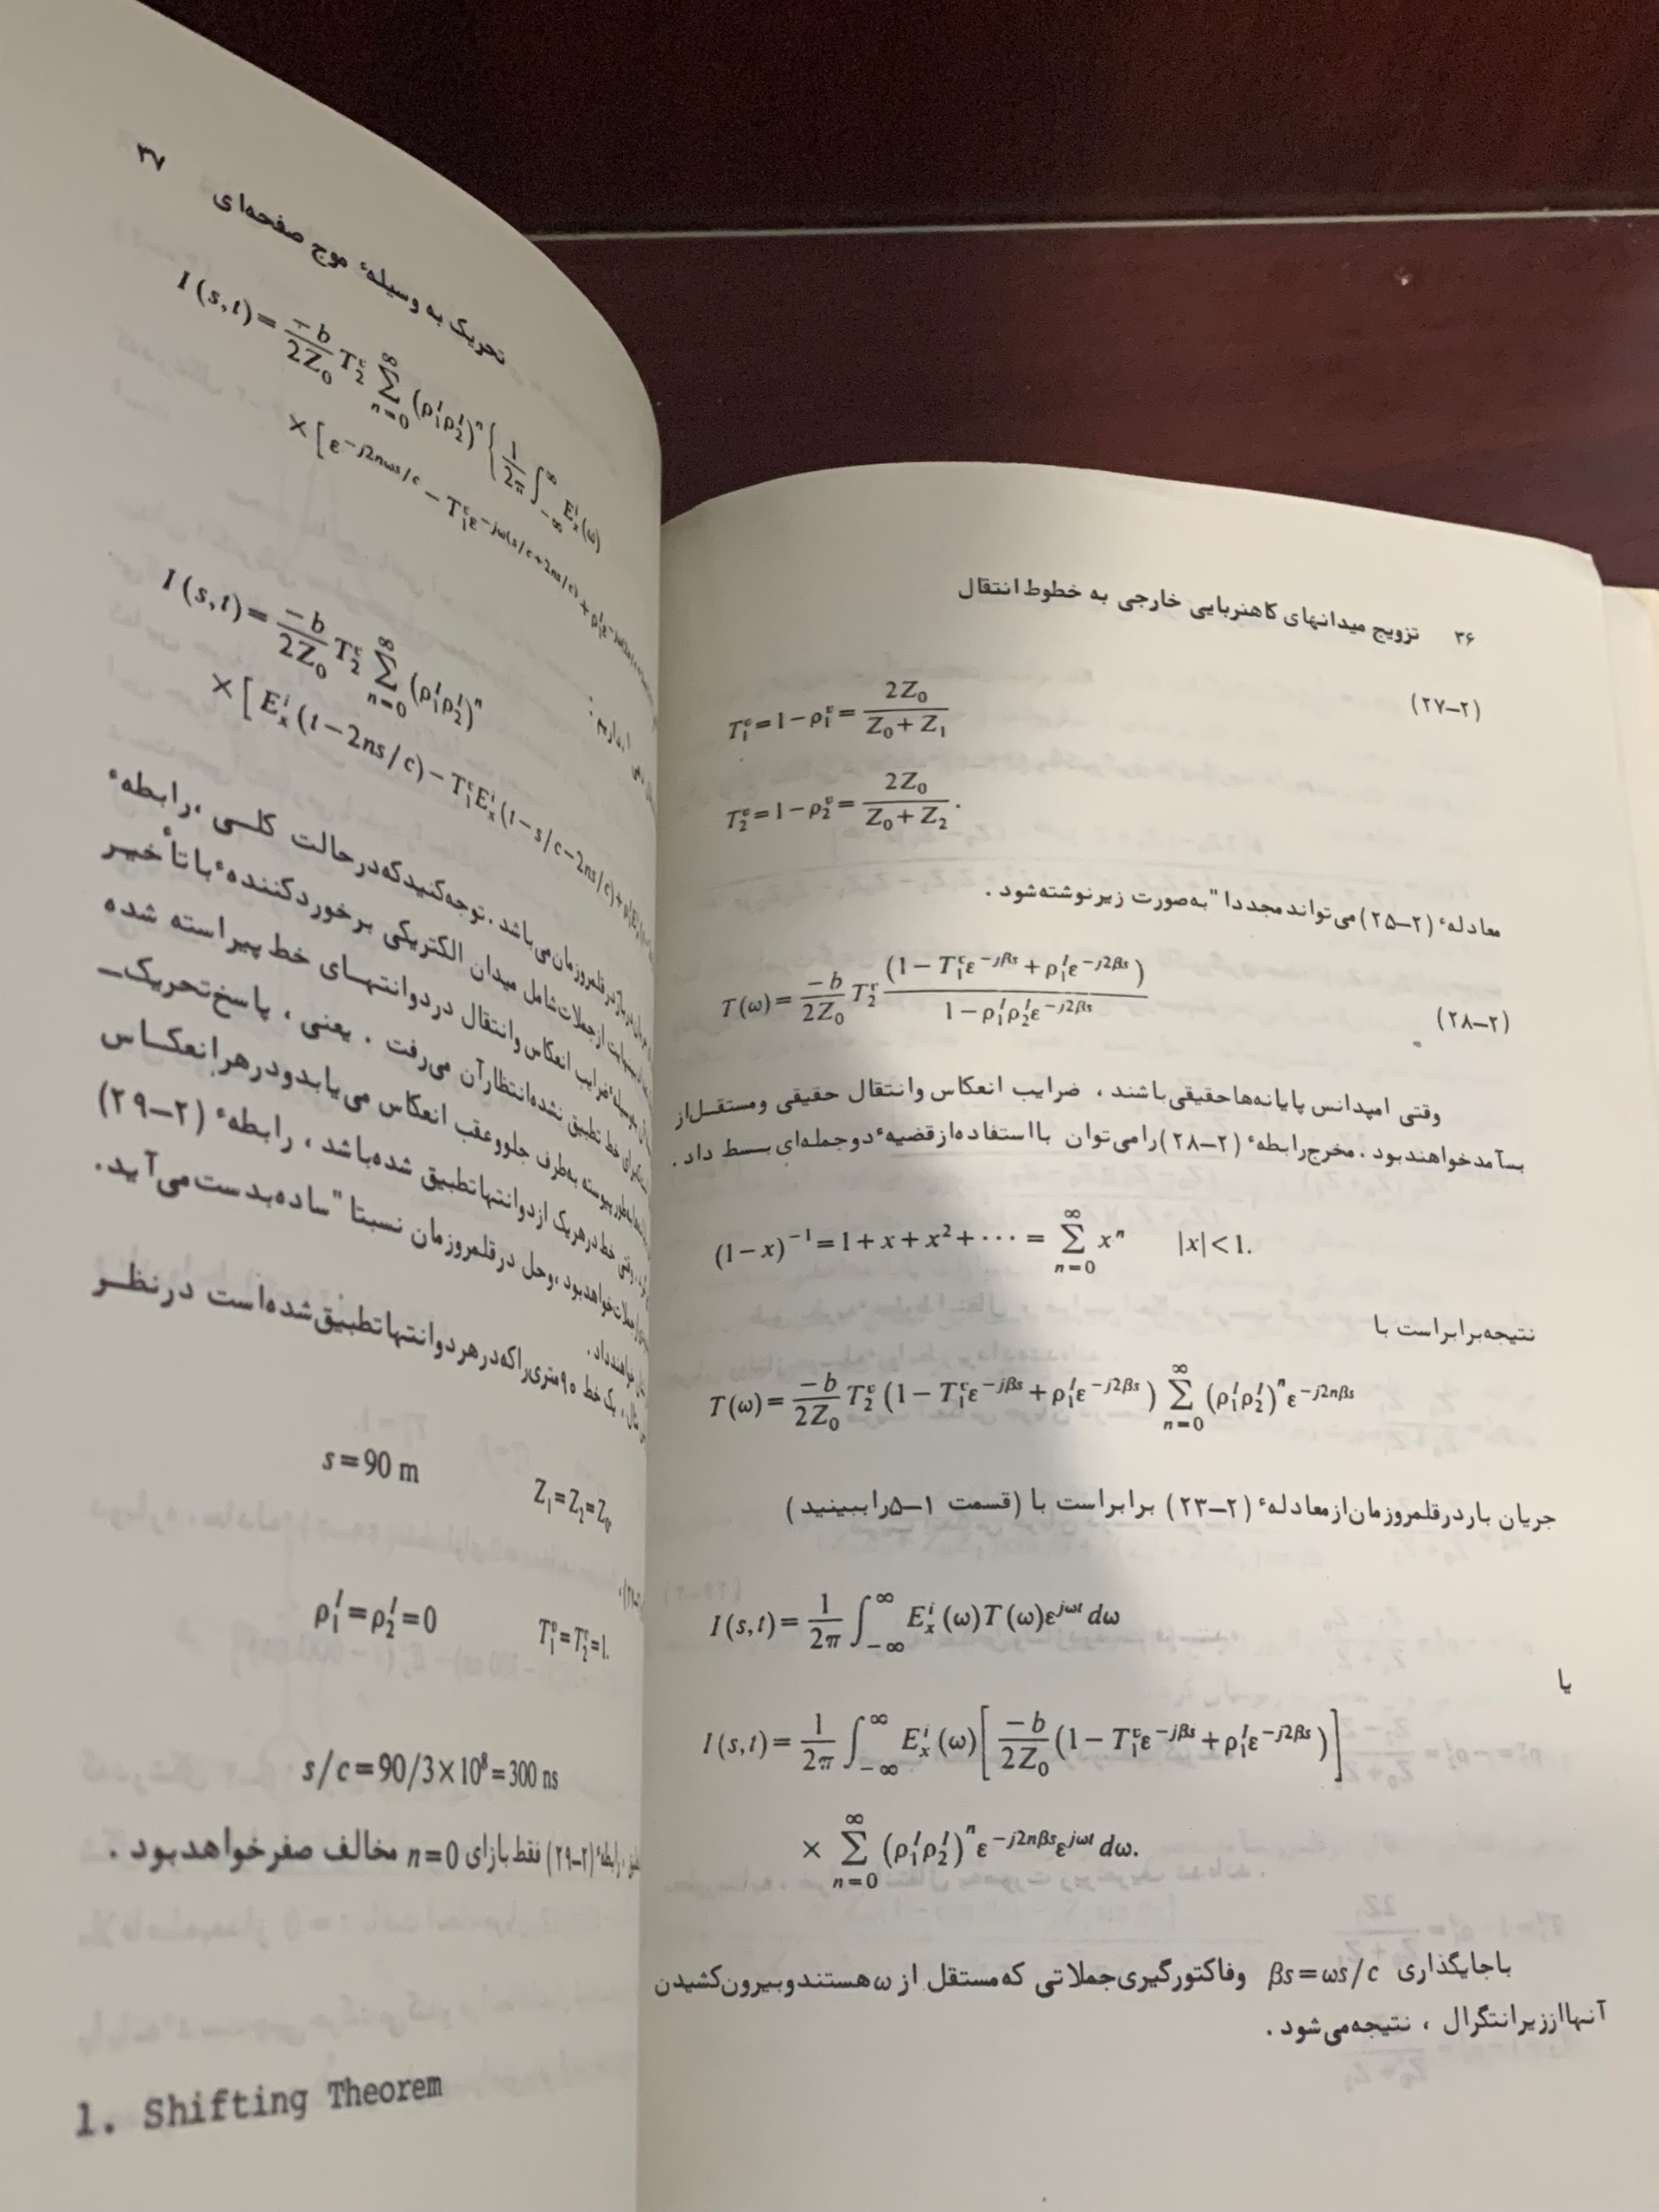 ۳۶ تزویج میدانهای کاهنربایی خارجی به خطوط انتقال
T₁ᵛ = 1 − ρ₁ᵛ = 2Z₀ / (Z₀ + Z₁) (۲-۲۷)
T₂ᵛ = 1 − ρ₂ᵛ = 2Z₀ / (Z₀ + Z₂).
معادلهٔ (۲-۲۵) می‌تواند مجددا" به‌صورت زیر نوشته شود .
T(ω) = (−b / 2Z₀) T₂ᵛ (1 − T₁ᵛ ε^(−jβs) + ρ₁ᴵ ε^(−j2βs)) / (1 − ρ₁ᴵ ρ₂ᴵ ε^(−j2βs)) (۲-۲۸)
وقتی امپدانس پایانه‌ها حقیقی باشند ، ضرایب انعکاس و انتقال حقیقی و مستقل از
بسآمد خواهند بود . مخرج رابطهٔ (۲-۲۸) را می‌توان با استفاده از قضیهٔ دوجمله‌ای بسط داد .
(1 − x)⁻¹ = 1 + x + x² + ··· = Σ_(n=0)^∞ xⁿ |x| < 1.
نتیجه برابر است با
T(ω) = (−b / 2Z₀) T₂ᵛ (1 − T₁ᵛ ε^(−jβs) + ρ₁ᴵ ε^(−j2βs)) Σ_(n=0)^∞ (ρ₁ᴵ ρ₂ᴵ)ⁿ ε^(−j2nβs)
جریان بار در قلمرو زمان از معادلهٔ (۲-۲۳) برابر است با (قسمت ۱-۵ را ببینید)
I(s,t) = (1/2π) ∫_(−∞)^∞ Eₓⁱ(ω) T(ω) ε^(jωt) dω
یا
I(s,t) = (1/2π) ∫_(−∞)^∞ Eₓⁱ(ω) [ (−b / 2Z₀) (1 − T₁ᵛ ε^(−jβs) + ρ₁ᴵ ε^(−j2βs)) ]
× Σ_(n=0)^∞ (ρ₁ᴵ ρ₂ᴵ)ⁿ ε^(−j2nβs) ε^(jωt) dω.
با جایگذاری βs = ωs/c و فاکتورگیری جملاتی که مستقل از ω هستند و بیرون کشیدن
آنها از زیر انتگرال ، نتیجه می‌شود .
تحریک به وسیلهٔ موج صفحه‌ای ۳۷
I(s,t) = (−b / 2Z₀) T₂ᵛ Σ_(n=0)^∞ (ρ₁ᴵ ρ₂ᴵ)ⁿ { (1/2π) ∫_(−∞)^∞ Eₓⁱ(ω)
× [ε^(−j2nωs/c) − T₁ᵛ ε^(−jω(s/c+2ns/c)) + ρ₁ᴵ
I(s,t) = (−b / 2Z₀) T₂ᵛ Σ_(n=0)^∞ (ρ₁ᴵ ρ₂ᴵ)ⁿ
× [Eₓⁱ(t − 2ns/c) − T₁ᵛ Eₓⁱ(t − s/c − 2ns/c) +
در قلمرو زمان می‌باشد . توجه کنید که در حالت کلی ، رابطهٔ
از جملات شامل میدان الکتریکی برخورد کننده با تأخیر
ضرایب انعکاس و انتقال در دو انتهای خط پیراسته شده
خط تطبیق نشده انتظار آن می‌رفت . یعنی ، پاسخ تحریک
به‌طور پیوسته به طرف جلو و عقب انعکاس می‌یابد و در هر انعکاس
وقتی خط در هریک از دو انتها تطبیق شده باشد ، رابطهٔ (۲-۲۹)
جملات خواهد بود ، و حل در قلمرو زمان نسبتا" ساده بدست می‌آید.
خواهند داد .
مثال ، یک خط ۹۰ متری را که در هر دو انتها تطبیق شده است در نظر
s = 90 m Z₁ = Z₂ = Z₀,
ρ₁ᴵ = ρ₂ᴵ = 0 T₁ᵛ = T₂ᵛ = 1.
s/c = 90/3×10⁸ = 300 ns
رابطهٔ (۲-۲۹) فقط بازای n=0 مخالف صفر خواهد بود .
1. Shifting Theorem